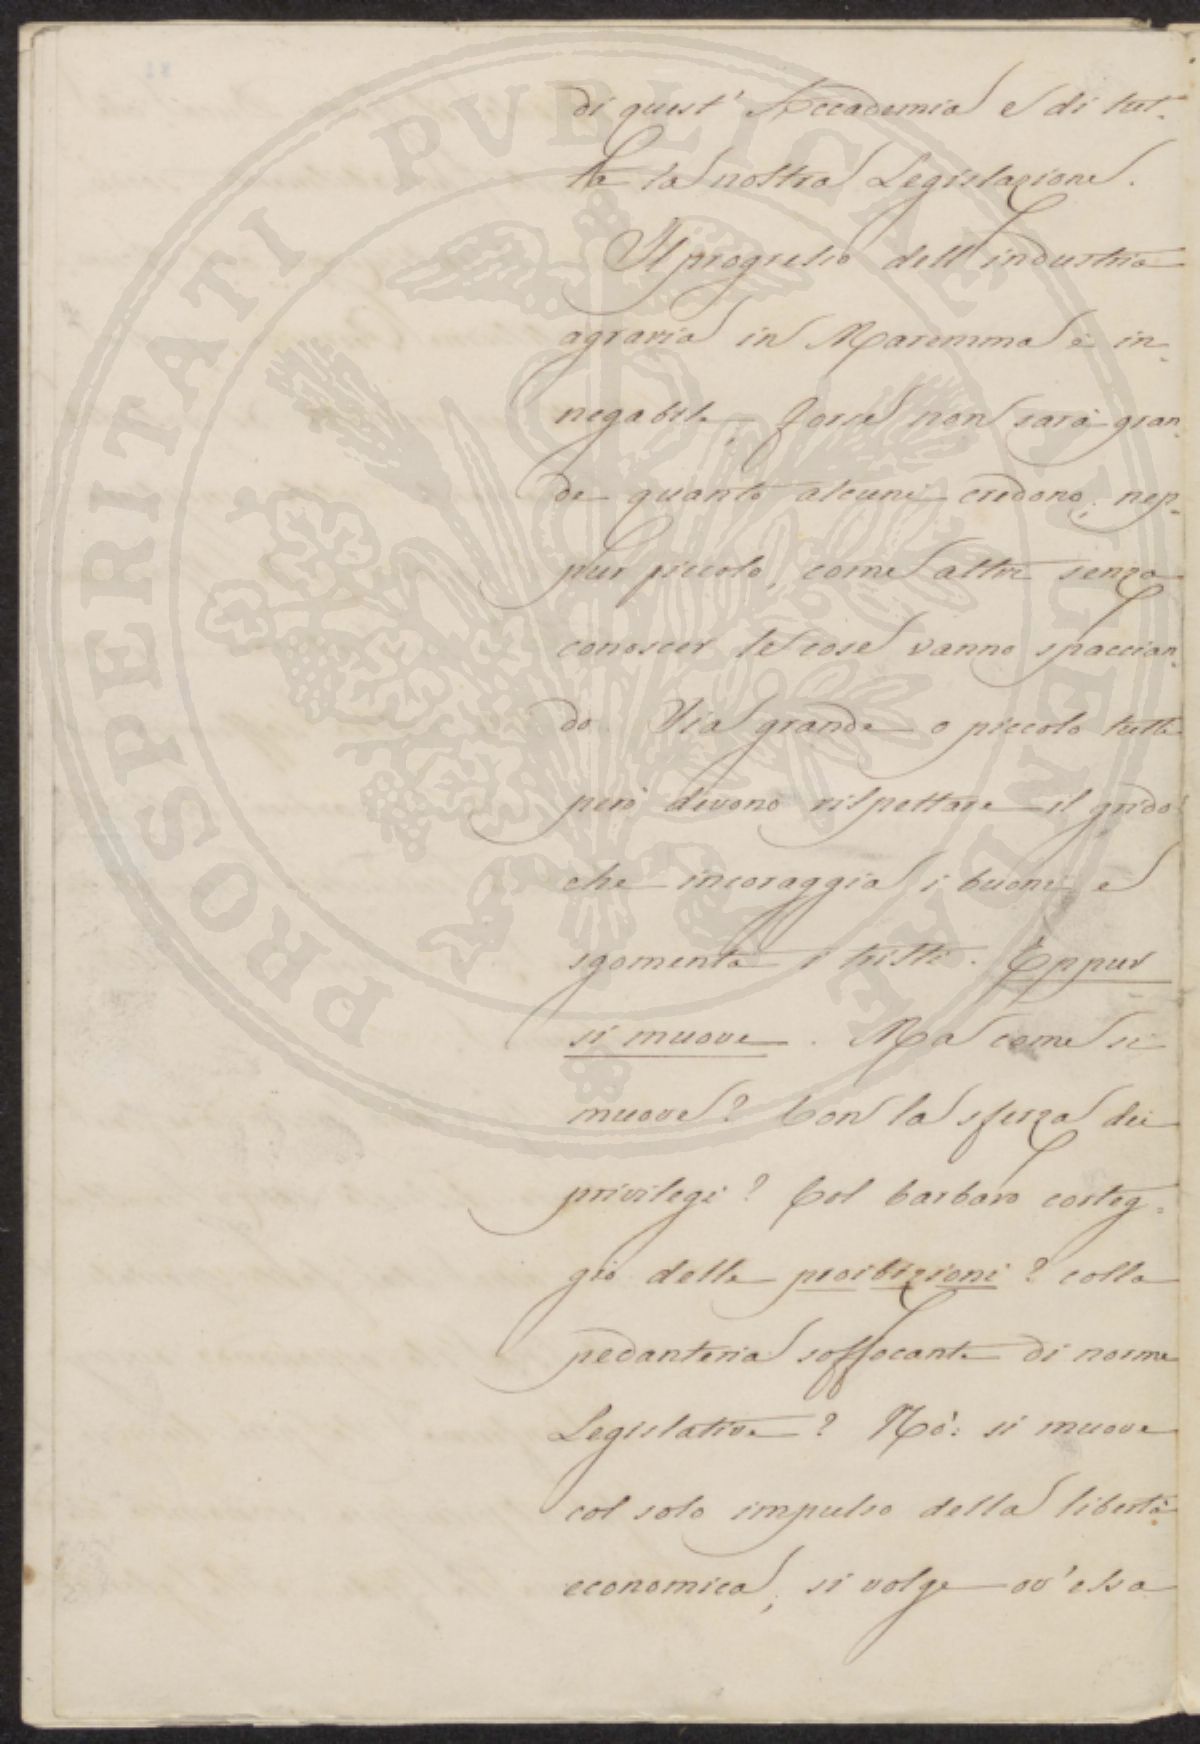 PROSPERITATI PVBLICAE AVGENDAE
di quest' Accademia e di tut-
ta la nostra Legislazione.
Il progresso dell'industria
agraria in Maremma è in-
negabile; forse non sarà gran-
de quanto alcuni credono; nep-
pur piccolo, come altri senza
conoscer le cose vanno spaccian-
do. Sia grande o piccolo tutti
però devono rispettare il grido
che incoraggia i buoni e
sgomenta i tristi. Eppur
si muove. Ma come si
muove? Con la sferza dei
privilegi? Col barbaro corteg-
gio delle proibizioni? colla
pedanteria soffocante di norme
Legislative? Nò: si muove
col solo impulso della libertà
economica; si volge ov'essa